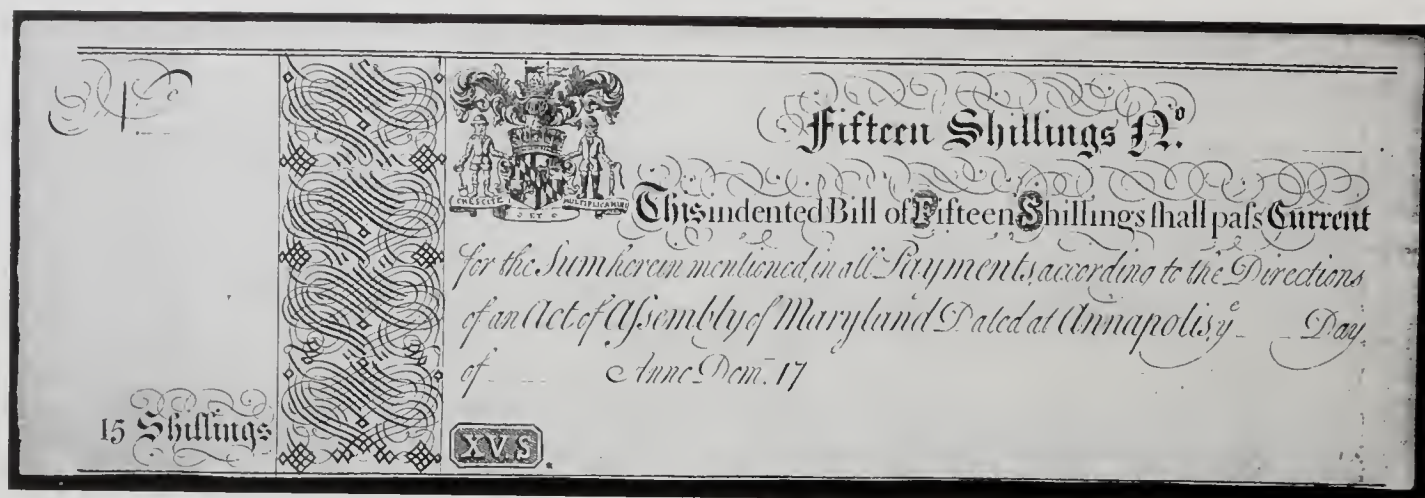 Nº
Fifteen Shillings Nº.
CRESCITE ET MULTIPLICAMINI
This indented Bill of Fifteen Shillings ſhall paſs Current
for the Sum herein mentioned, in all Payments, according to the Directions
of an Act of Aſsembly of Maryland Dated at Annapolis, yᵉ Day
of Anno Dom. 17
15 Shillings
XV.S